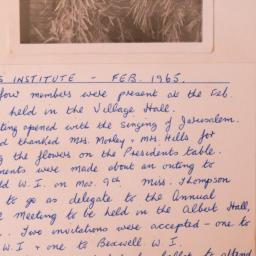 S INSTITUTE - FEB. 1965.
few members were present at the Feb.
held in the Village Hall.
ting opened with the singing of Jerusalem.
d thanked Mrs. Morley + Mrs. Hills for
g the flowers on the Presidents table.
ments were made about an outing to
ld W.I. on Mar. 9th. Miss. Thompson
to go as delegate to the Annual
l Meeting to be held in the Albert Hall,
. Two invitations were accepted - one to
W.I + one to Bexwell W.I.
ballot to attend